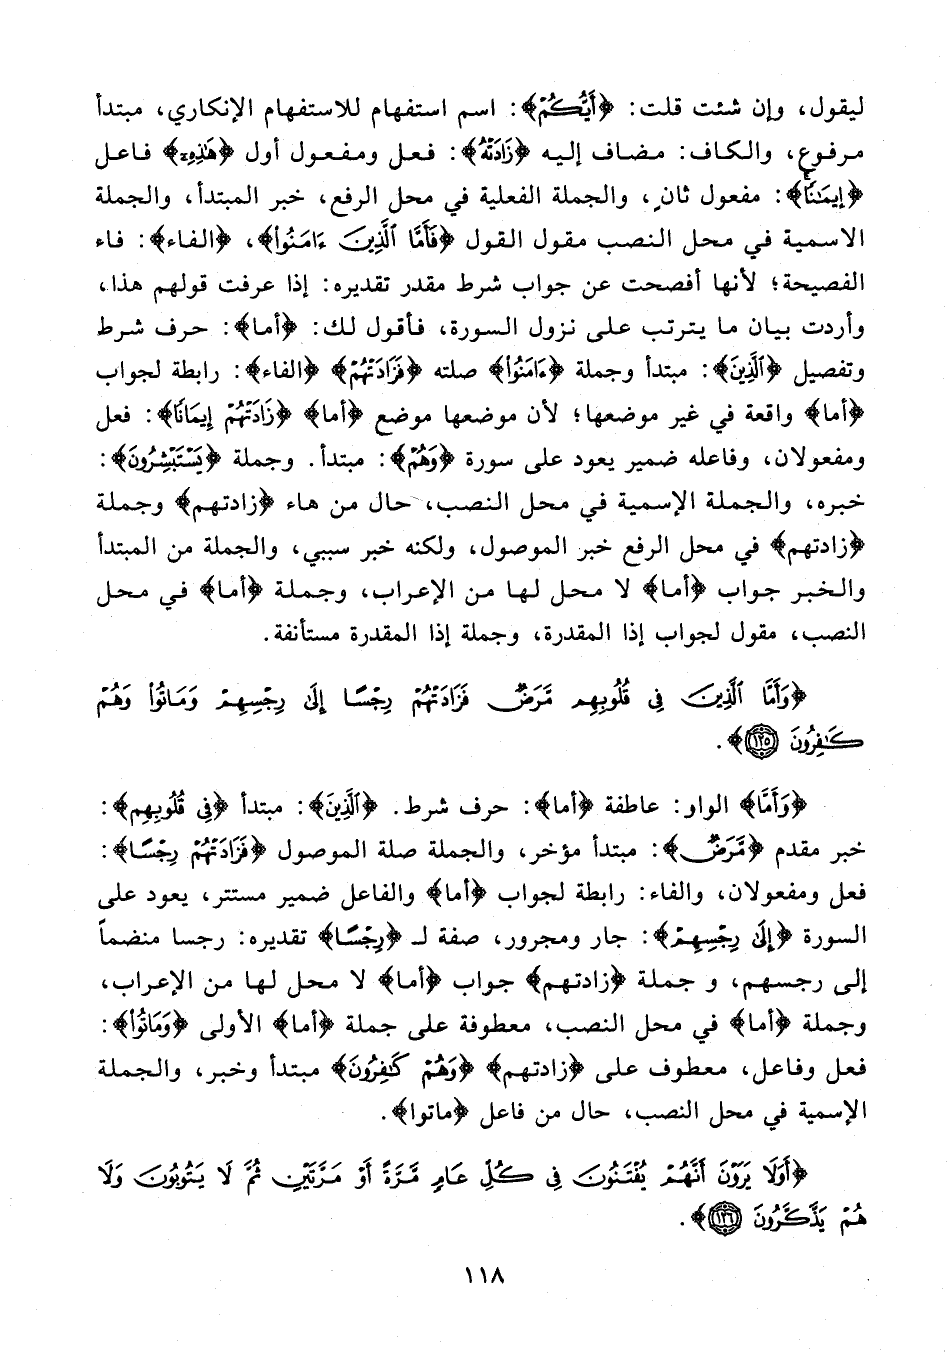 ليقول، وإن شئت قلت: ﴿أَيُّكُمْ﴾: اسم استفهام للاستفهام الإنكاري، مبتدأ
مرفوع، والكاف: مضاف إليه ﴿زَادَتْهُ﴾: فعل ومفعول أول ﴿هَٰذِهِۦٓ﴾ فاعل
﴿إِيمَٰنًا﴾: مفعول ثانٍ، والجملة الفعلية في محل الرفع، خبر المبتدأ، والجملة
الاسمية في محل النصب مقول القول ﴿فَأَمَّا ٱلَّذِينَ ءَامَنُوا۟﴾، ﴿الفاء﴾: فاء
الفصيحة؛ لأنها أفصحت عن جواب شرط مقدر تقديره: إذا عرفت قولهم هذا،
وأردت بيان ما يترتب على نزول السورة، فأقول لك: ﴿أما﴾: حرف شرط
وتفصيل ﴿ٱلَّذِينَ﴾: مبتدأ وجملة ﴿ءَامَنُوا۟﴾ صلته ﴿فَزَادَتْهُمْ﴾ ﴿الفاء﴾: رابطة لجواب
﴿أما﴾ واقعة في غير موضعها؛ لأن موضعها موضع ﴿أما﴾ ﴿زَادَتْهُمْ إِيمَانًا﴾: فعل
ومفعولان، وفاعله ضمير يعود على سورة ﴿وَهُمْ﴾: مبتدأ. وجملة ﴿يَسْتَبْشِرُونَ﴾:
خبره، والجملة الإسمية في محل النصب، حال من هاء ﴿زادتهم﴾ وجملة
﴿زادتهم﴾ في محل الرفع خبر الموصول، ولكنه خبر سببي، والجملة من المبتدأ
والخبر جواب ﴿أما﴾ لا محل لها من الإعراب، وجملة ﴿أما﴾ في محل
النصب، مقول لجواب إذا المقدرة، وجملة إذا المقدرة مستأنفة.
﴿وَأَمَّا ٱلَّذِينَ فِى قُلُوبِهِم مَّرَضٌ فَزَادَتْهُمْ رِجْسًا إِلَىٰ رِجْسِهِمْ وَمَاتُوا۟ وَهُمْ
كَٰفِرُونَ ١٢٥﴾.
﴿وَأَمَّا﴾ الواو: عاطفة ﴿أما﴾: حرف شرط. ﴿ٱلَّذِينَ﴾: مبتدأ ﴿فِى قُلُوبِهِم﴾:
خبر مقدم ﴿مَّرَضٌ﴾: مبتدأ مؤخر، والجملة صلة الموصول ﴿فَزَادَتْهُمْ رِجْسًا﴾:
فعل ومفعولان، والفاء: رابطة لجواب ﴿أما﴾ والفاعل ضمير مستتر، يعود على
السورة ﴿إِلَىٰ رِجْسِهِمْ﴾: جار ومجرور، صفة لـ ﴿رِجْسًا﴾ تقديره: رجسا منضماً
إلى رجسهم، و جملة ﴿زادتهم﴾ جواب ﴿أما﴾ لا محل لها من الإعراب،
وجملة ﴿أما﴾ في محل النصب، معطوفة على جملة ﴿أما﴾ الأولى ﴿وَمَاتُوا۟﴾:
فعل وفاعل، معطوف على ﴿زادتهم﴾ ﴿وَهُمْ كَٰفِرُونَ﴾ مبتدأ وخبر، والجملة
الإسمية في محل النصب، حال من فاعل ﴿ماتوا﴾.
﴿أَوَلَا يَرَوْنَ أَنَّهُمْ يُفْتَنُونَ فِى كُلِّ عَامٍ مَّرَّةً أَوْ مَرَّتَيْنِ ثُمَّ لَا يَتُوبُونَ وَلَا
هُمْ يَذَّكَّرُونَ ١٢٦﴾.
١١٨